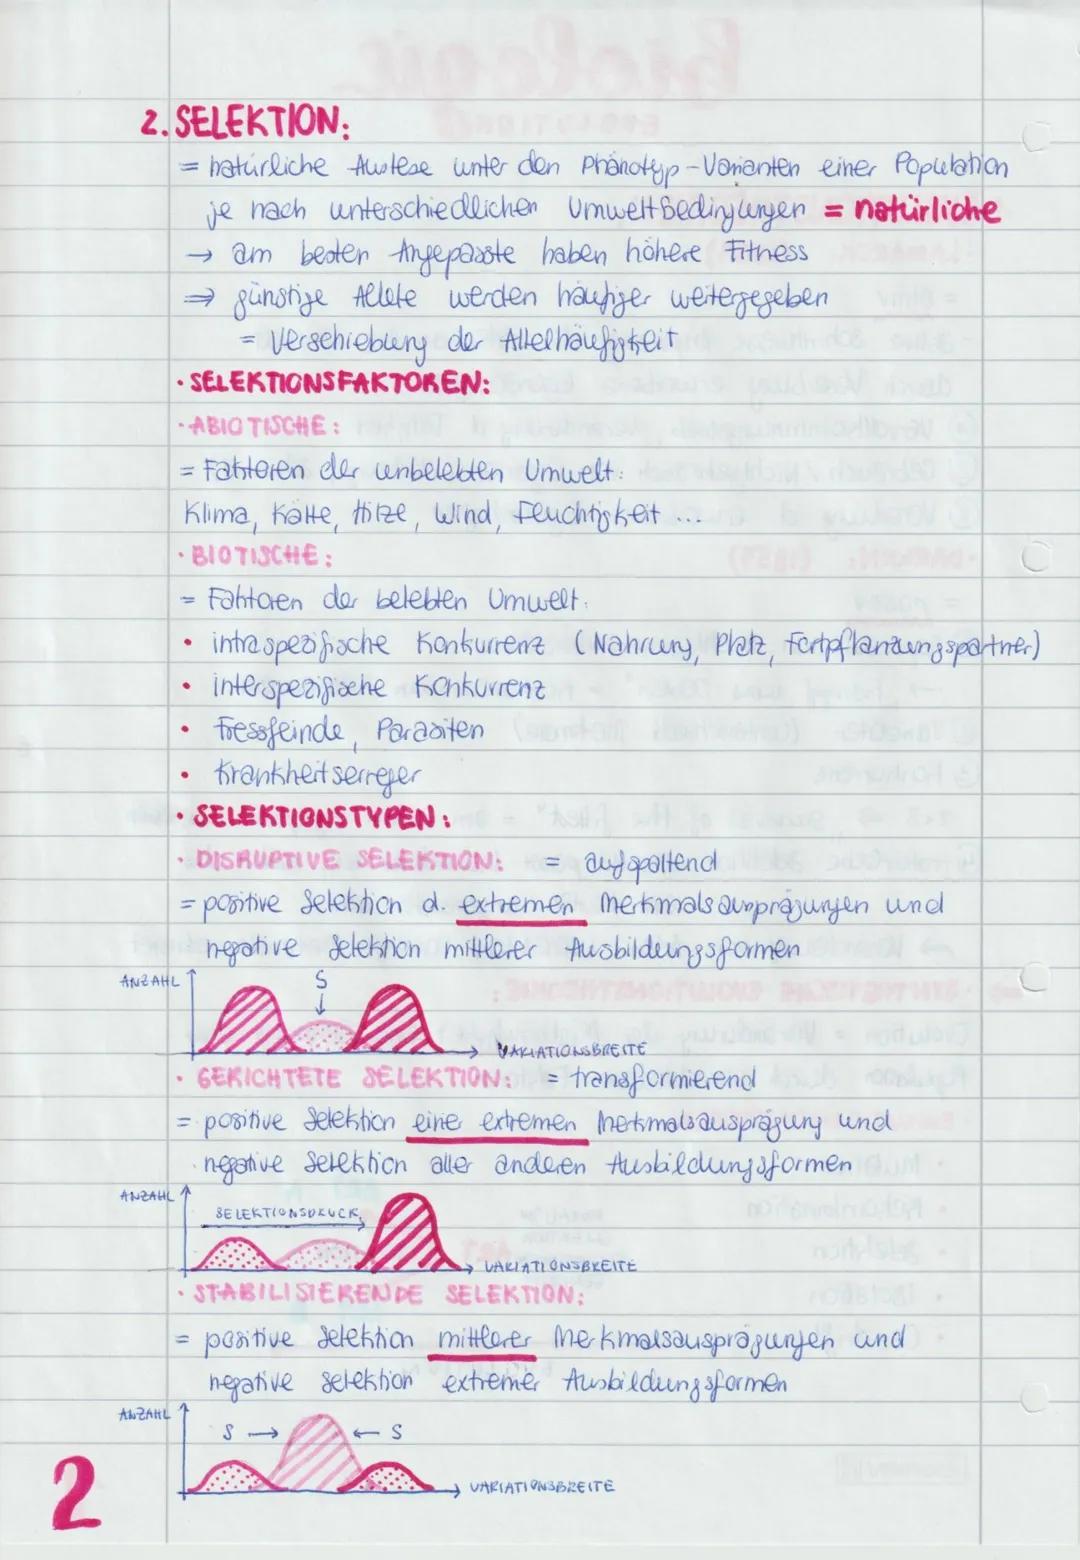 2. SELEKTION:
= natürliche Auslese unter den Phänotyp-Varianten einer Population
je nach unterschiedlichen Umweltbedingungen = natürliche
→ am besten Angepasste haben höhere Fitness
⇒ günstige Allele werden häufiger weitergegeben
= Verschiebung der Allelhäufigkeit
• SELEKTIONSFAKTOREN:
• ABIOTISCHE:
= Faktoren der unbelebten Umwelt:
Klima, Kälte, Hitze, Wind, Feuchtigkeit ...
• BIOTISCHE:
= Faktoren der belebten Umwelt:
• intraspezifische Konkurrenz (Nahrung, Platz, Fortpflanzungspartner)
• interspezifische Konkurrenz
• Fressfeinde, Parasiten
• Krankheitserreger
• SELEKTIONSTYPEN:
• DISRUPTIVE SELEKTION: = aufspaltend
= positive Selektion d. extremen Merkmalsausprägungen und
negative Selektion mittlerer Ausbildungsformen
ANZAHL S
↓
→ VARIATIONSBREITE
• GERICHTETE SELEKTION: = transformierend
= positive Selektion einer extremen Merkmalsausprägung und
negative Selektion aller anderen Ausbildungsformen
ANZAHL
SELEKTIONSDRUCK
→ VARIATIONSBREITE
• STABILISIERENDE SELEKTION:
= positive Selektion mittlerer Merkmalsausprägungen und
negative Selektion extremer Ausbildungsformen
ANZAHL
S → ← S
→ VARIATIONSBREITE
2